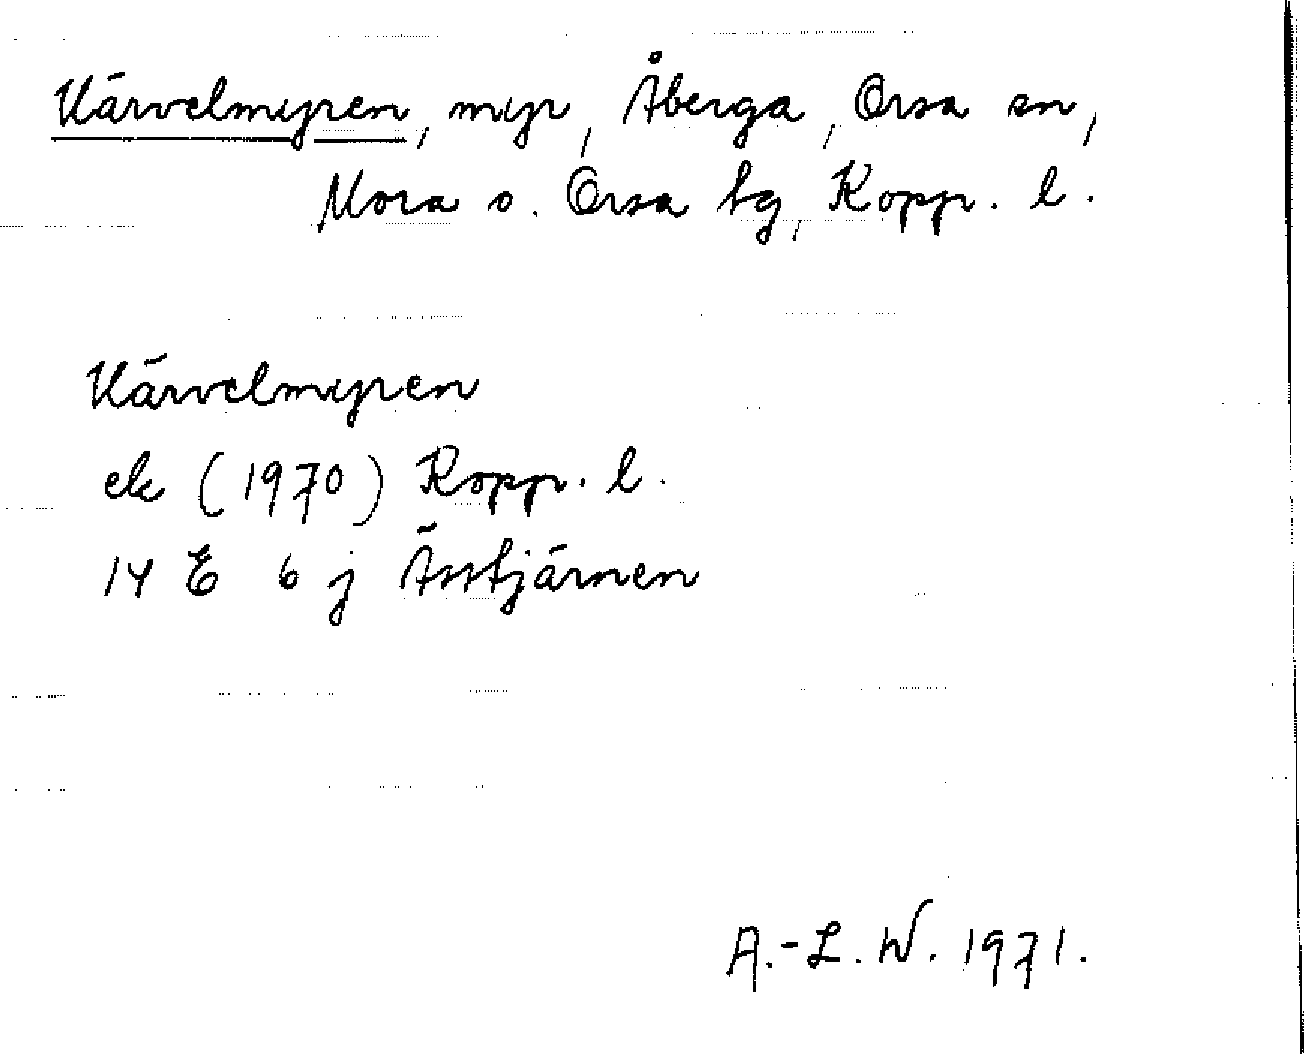 Kärvelmyren, myr, Åberga, Orsa sn,
Mora o. Orsa tg, Kopp. l.
Kärvelmyren
ek (1970) Kopp. l.
14 E 6 j Ässtjärnen
A.-L. W. 1971.